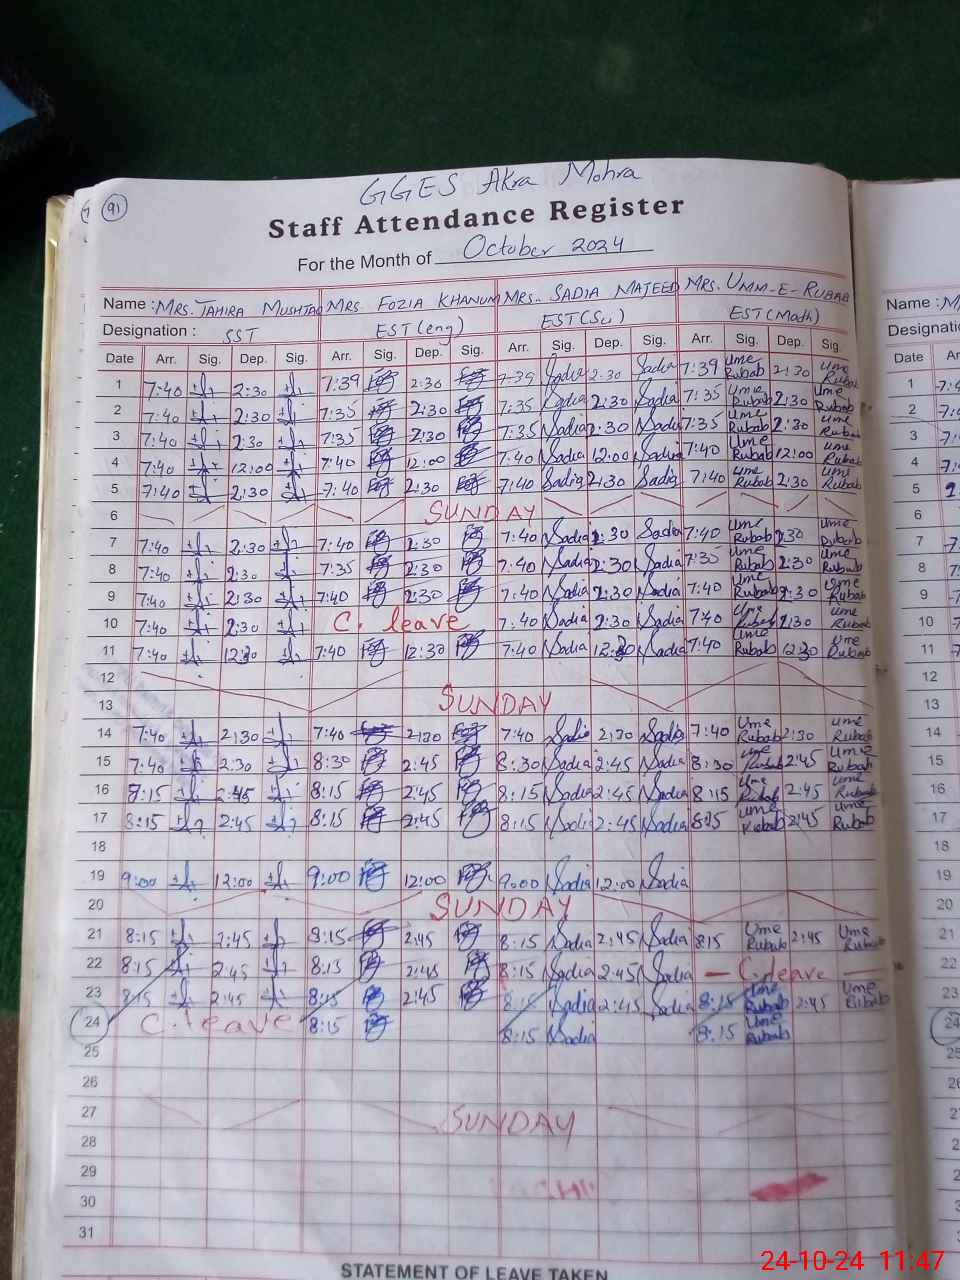 91
GGES Akra Mohra
Staff Attendance Register
For the Month of October 2024
Name : MRS. TAHIRA MUSHTAQ MRS. FOZIA KHANUM MRS. SADIA MAJEED MRS. UMM-E-RUBAB
Designation : SST EST (eng) EST (Sci) EST (Math)
Date Arr. Sig. Dep. Sig. Arr. Sig. Dep. Sig. Arr. Sig. Dep. Sig. Arr. Sig. Dep. Sig.
1 7:40 2:30 7:39 2:30 7:39 Sadia 2:30 Sadia 7:39 Ume Rubab 2:30 Ume Rubab
2 7:40 2:30 7:35 2:30 7:35 Sadia 2:30 Sadia 7:35 Ume Rubab 2:30 Ume Rubab
3 7:40 2:30 7:35 2:30 7:35 Sadia 2:30 Sadia 7:35 Ume Rubab 2:30 Ume Rubab
4 7:40 12:00 7:40 12:00 7:40 Sadia 12:00 Sadia 7:40 Ume Rubab 12:00 Ume Rubab
5 7:40 2:30 7:40 2:30 7:40 Sadia 2:30 Sadia 7:40 Ume Rubab 2:30 Ume Rubab
6 SUNDAY
7 7:40 2:30 7:40 2:30 7:40 Sadia 2:30 Sadia 7:40 Ume Rubab 2:30 Ume Rubab
8 7:40 2:30 7:35 2:30 7:40 Sadia 2:30 Sadia 7:35 Ume Rubab 2:30 Ume Rubab
9 7:40 2:30 7:40 2:30 7:40 Sadia 2:30 Sadia 7:40 Ume Rubab 2:30 Ume Rubab
10 7:40 2:30 C. leave 7:40 Sadia 2:30 Sadia 7:40 Ume Rubab 2:30 Ume Rubab
11 7:40 12:30 7:40 12:30 7:40 Sadia 12:30 Sadia 7:40 Ume Rubab 12:30 Ume Rubab
12
13 SUNDAY
14 7:40 2:30 7:40 2:30 7:40 Sadia 2:30 Sadia 7:40 Ume Rubab 2:30 Ume Rubab
15 7:40 2:30 8:30 2:45 8:30 Sadia 2:45 Sadia 8:30 Ume Rubab 2:45 Ume Rubab
16 8:15 2:45 8:15 2:45 8:15 Sadia 2:45 Sadia 8:15 Ume Rubab 2:45 Ume Rubab
17 8:15 2:45 8:15 2:45 8:15 Sadia 2:45 Sadia 8:15 Ume Rubab 2:45 Ume Rubab
18
19 9:00 12:00 9:00 12:00 9:00 Sadia 12:00 Sadia
20 SUNDAY
21 8:15 2:45 8:15 2:45 8:15 Sadia 2:45 Sadia 8:15 Ume Rubab 2:45 Ume Rubab
22 8:15 2:45 8:15 2:45 8:15 Sadia 2:45 Sadia C. leave
23 8:15 2:45 8:15 2:45 8:15 Sadia 2:45 Sadia 8:15 Ume Rubab 2:45 Ume Rubab
24 C. leave 8:15 8:15 Sadia 8:15 Ume Rubab
25
26
27 SUNDAY
28
29
30
31
STATEMENT OF LEAVE TAKEN
24-10-24 11:47